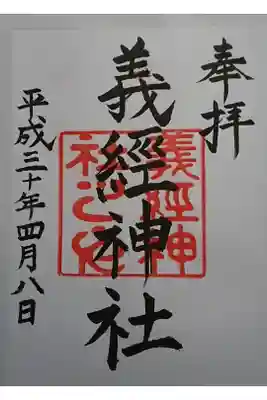 奉拝
義經神社
義經神社之印
平成三十年四月八日